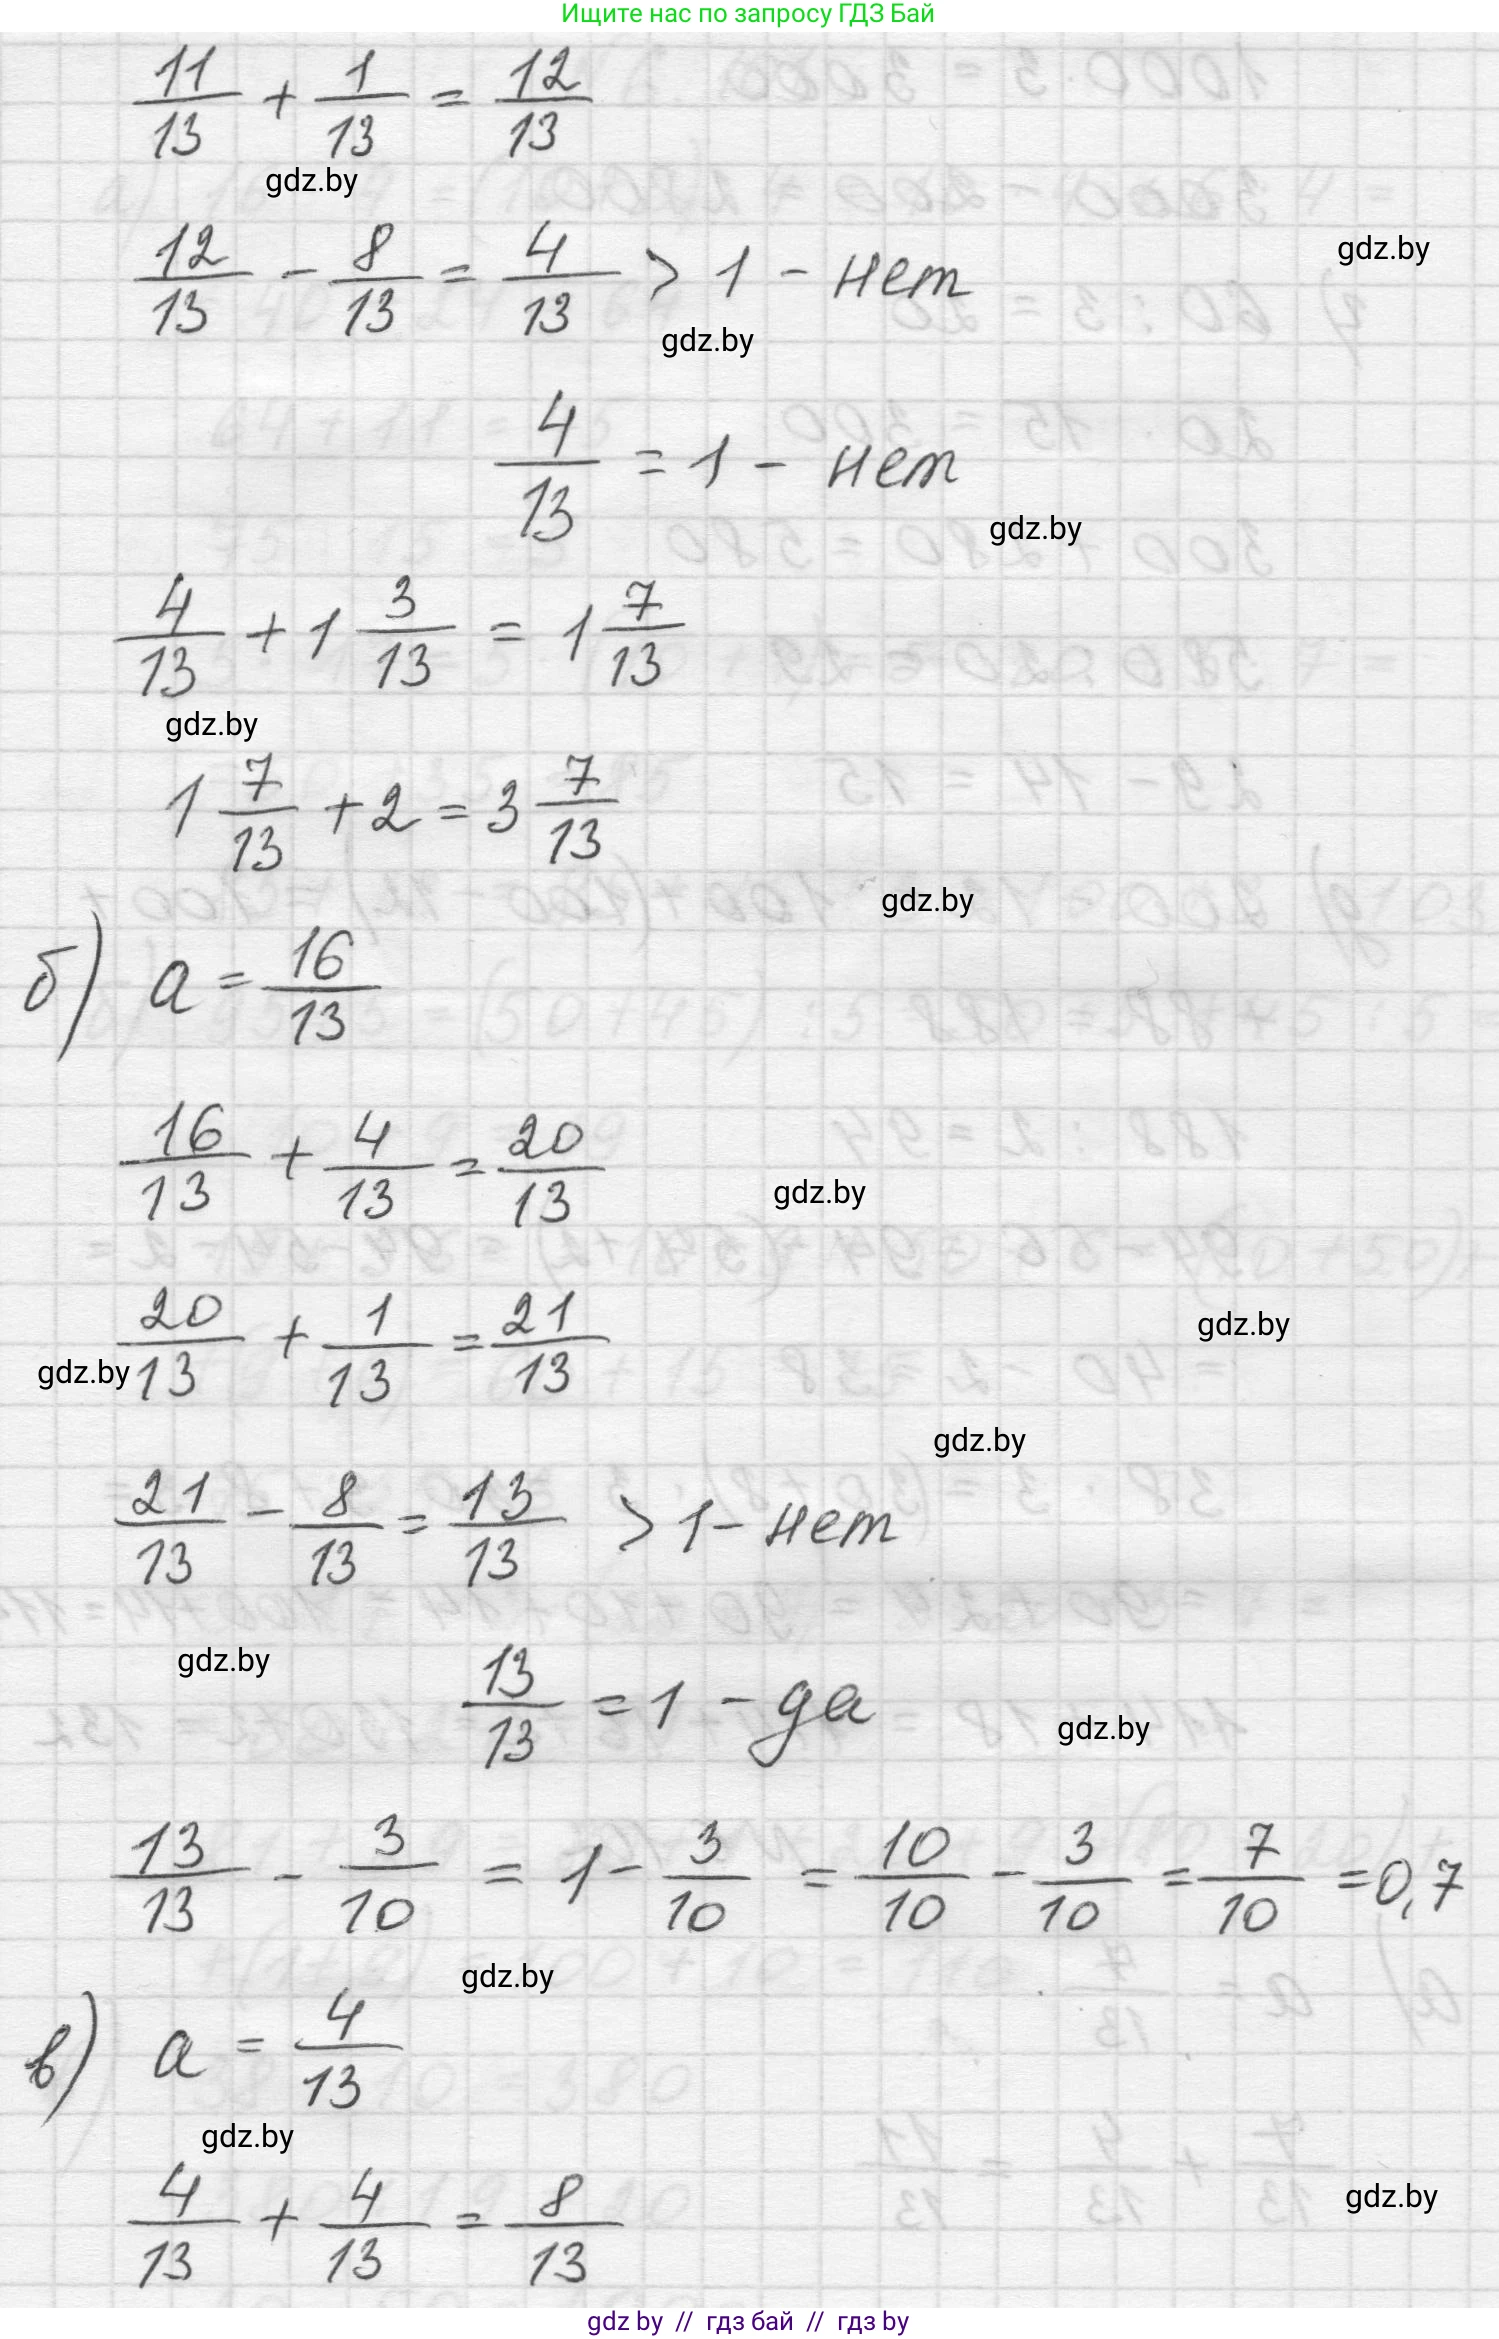 Ищите нас по запросу ГДЗ Бай
11/13 + 1/13 = 12/13
gdz.by
12/13 - 8/13 = 4/13 > 1 - нет
gdz.by
gdz.by
4/13 = 1 - нет
gdz.by
4/13 + 1 3/13 = 1 7/13
gdz.by
1 7/13 + 2 = 3 7/13
gdz.by
б) a = 16/13
16/13 + 4/13 = 20/13
gdz.by
20/13 + 1/13 = 21/13
gdz.by
gdz.by
gdz.by
21/13 - 8/13 = 13/13 > 1 - нет
gdz.by
13/13 = 1 - да
gdz.by
13/13 - 3/10 = 1 - 3/10 = 10/10 - 3/10 = 7/10 = 0,7
gdz.by
в) a = 4/13
gdz.by
4/13 + 4/13 = 8/13
gdz.by
gdz by // гдз бай // гдз by